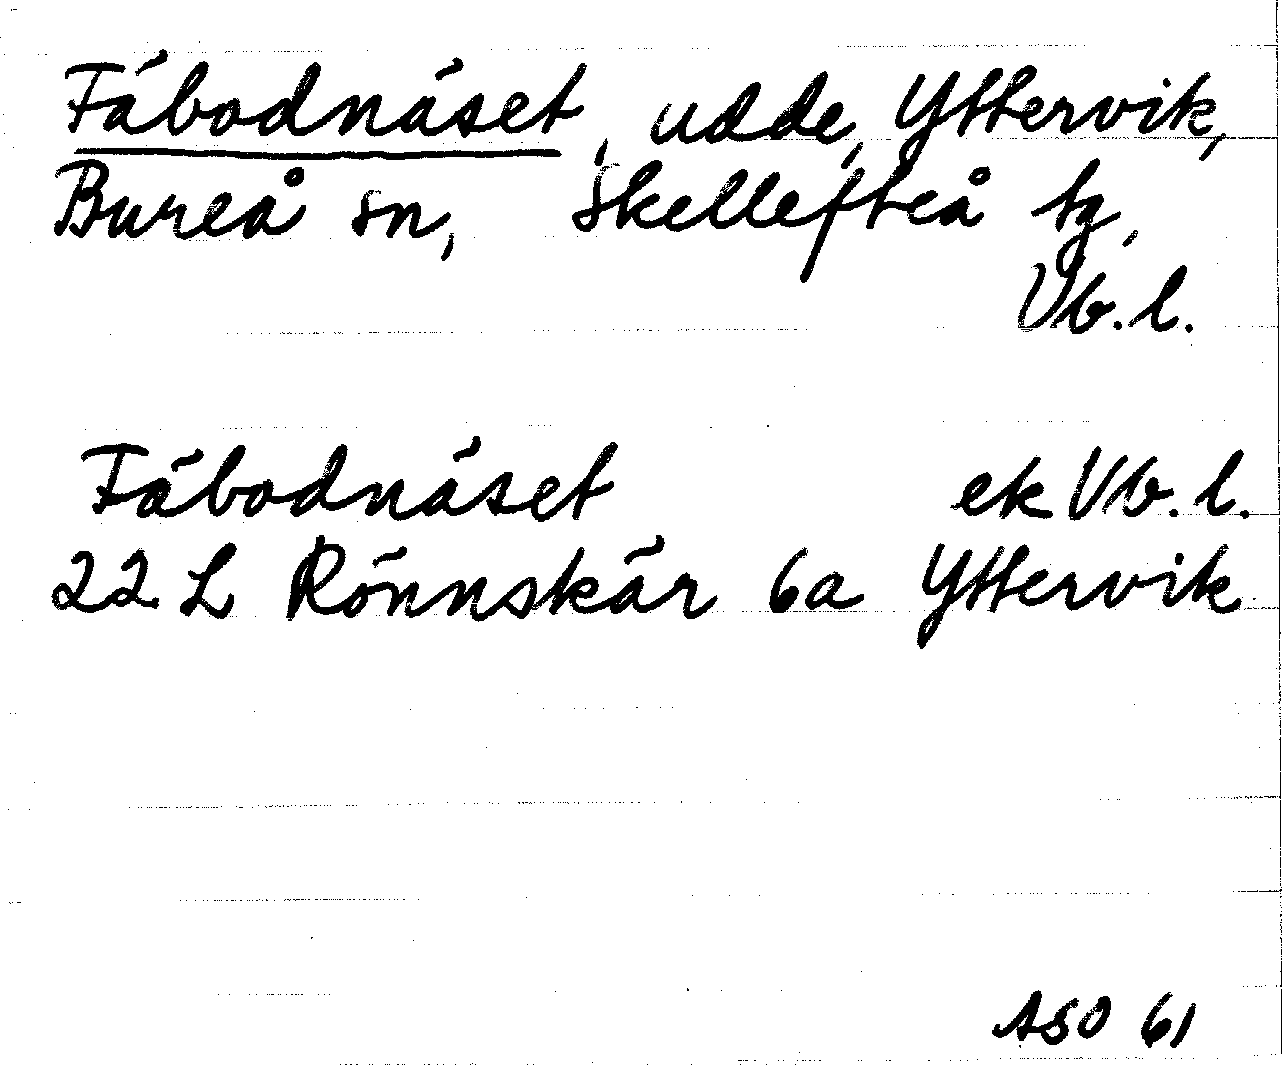 Fäbodnäset, udde, Yttervik,
Bureå sn, Skellefteå tg,
Vb.l.
Fäbodnäset ek Vb.l.
22 L Rönnskär 6a Yttervik
ASO 61